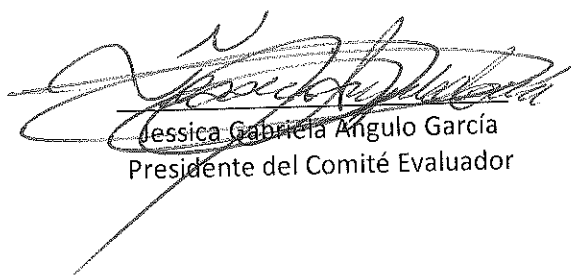 Jessica Gabriela Angulo García
Presidente del Comité Evaluador